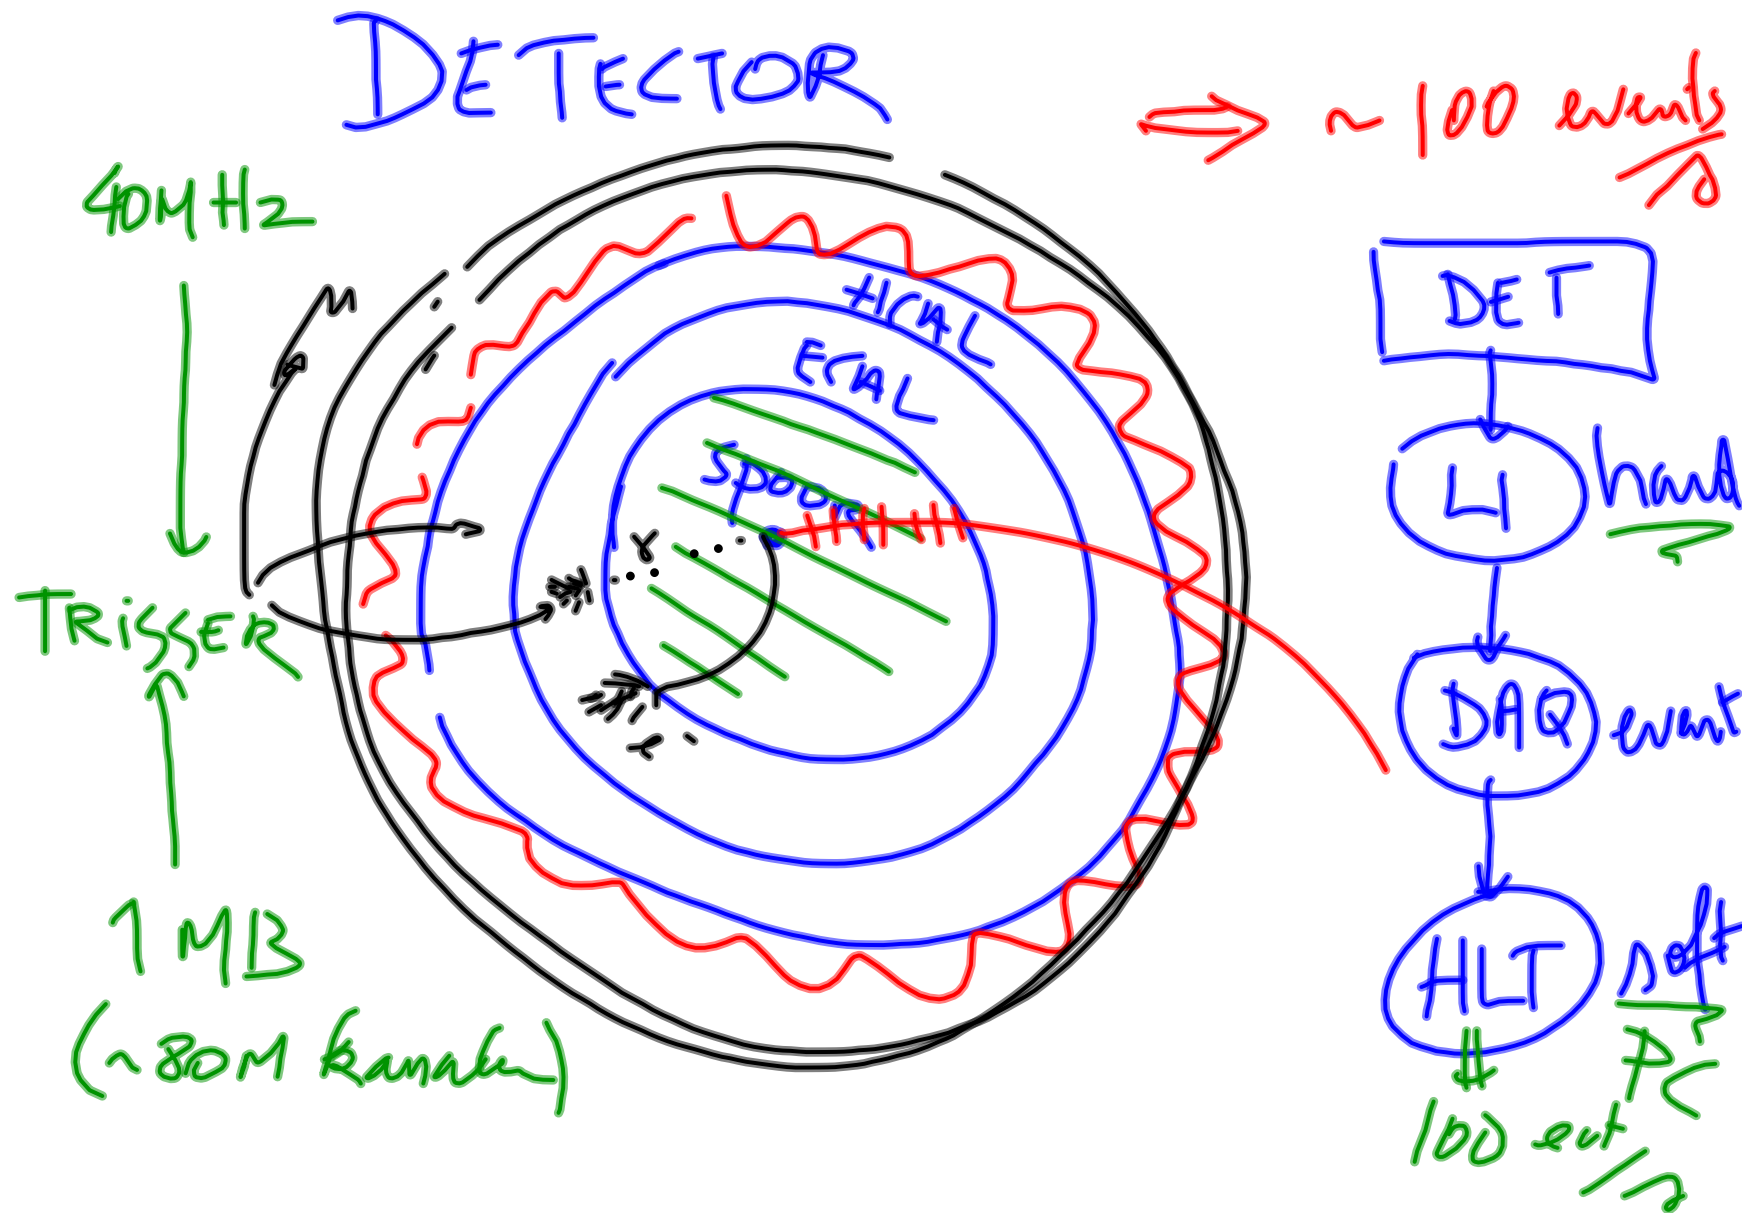 DETECTOR
⇒ ~ 100 events/s
40MHz
TRIGGER
1 MB
(~80M kanalen)
HCAL
ECAL
Spoor
γ
e-
μ
DET
L1 hard
DAQ event
HLT soft
PC
100 evt/s